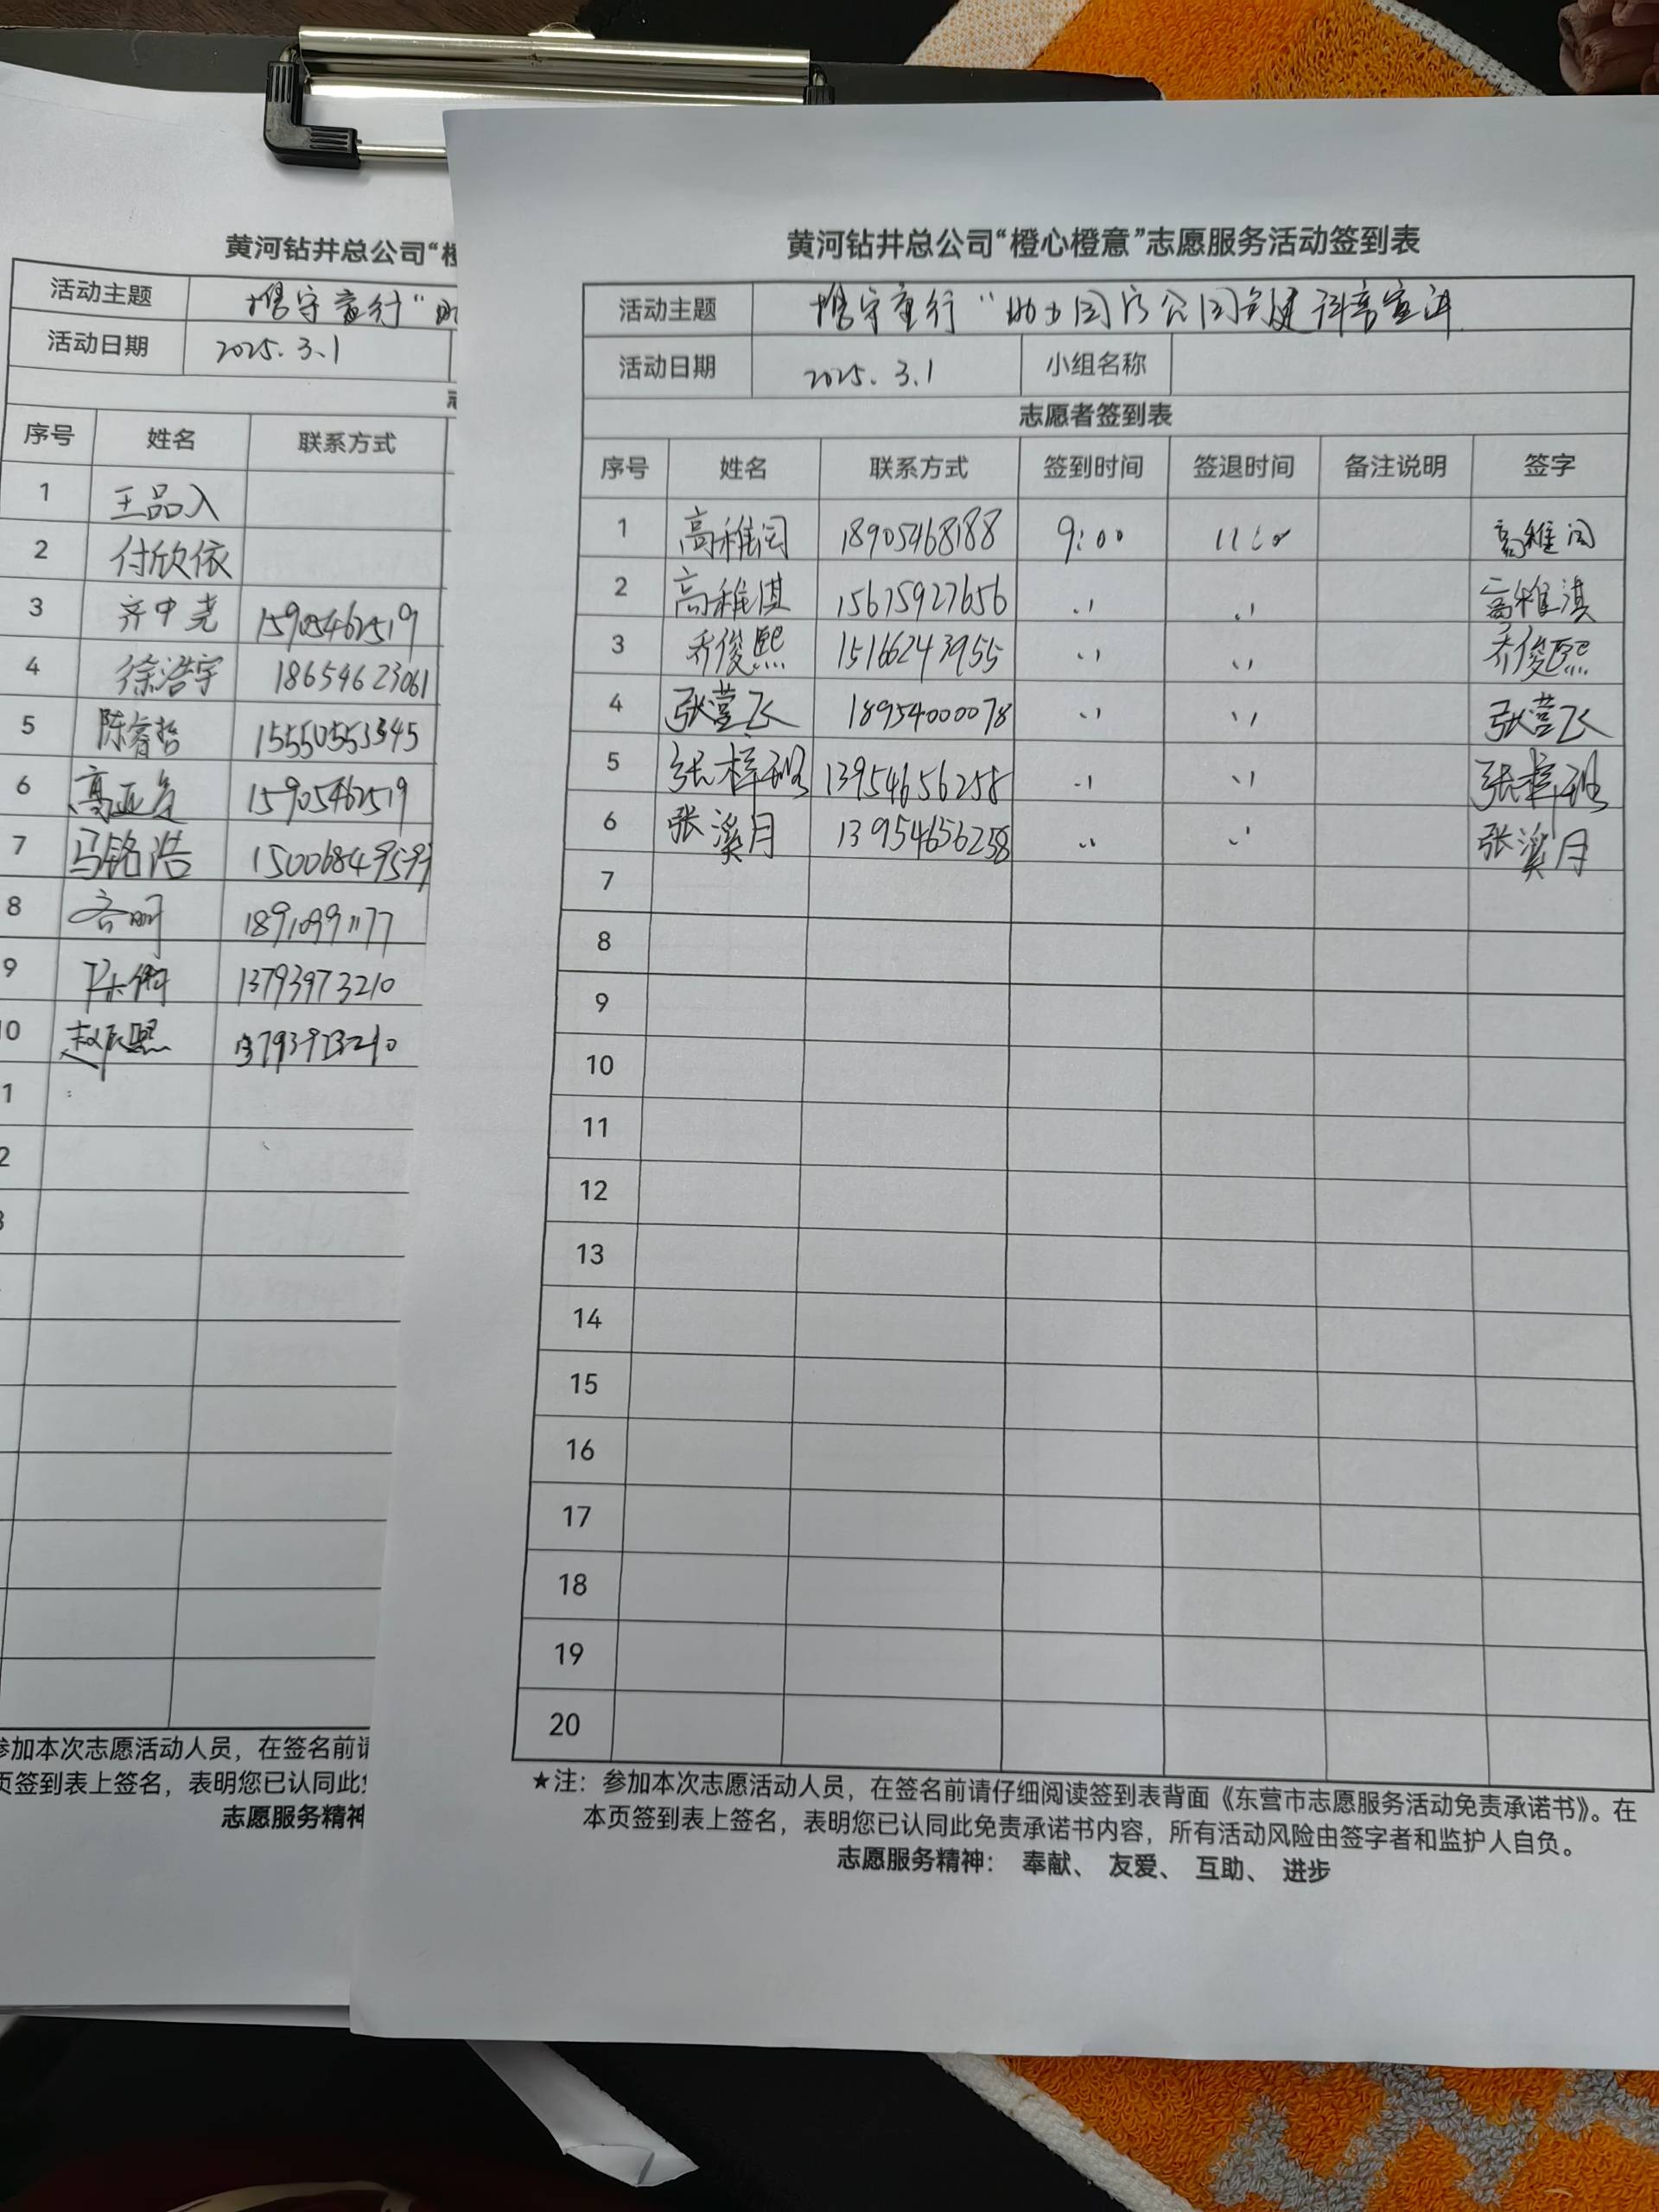 黄河钻井总公司“橙
活动主题
活动日期 2025.3.1
序号 姓名 联系方式
1 王品入
2 付欣依
3 齐中尧 15905462519
4 徐浩宇 18654623061
5 陈睿哲 15550553345
6 高亚 15905462519
7 马铭浩 15006849595
8 18910991177
9 13793973210
10 赵 熙 13793973210
1
2
3
参加本次志愿活动人员，在签名前请
页签到表上签名，表明您已认同此
志愿服务精神
黄河钻井总公司“橙心橙意”志愿服务活动签到表
活动主题 守童行“助力 公园 科普宣讲
活动日期 2025.3.1 小组名称
志愿者签到表
序号 姓名 联系方式 签到时间 签退时间 备注说明 签字
1 高稚闵 18905468188 9:00 11:00 高稚闵
2 高稚淇 15675927656 〃 〃 高稚淇
3 乔俊熙 15166243955 〃 〃 乔俊熙
4 张萱飞 18954000078 〃 〃 张萱飞
5 张梓 13954656258 〃 〃 张梓
6 张溪月 13954656258 〃 〃 张溪月
7
8
9
10
11
12
13
14
15
16
17
18
19
20
★注：参加本次志愿活动人员，在签名前请仔细阅读签到表背面《东营市志愿服务活动免责承诺书》。在
本页签到表上签名，表明您已认同此免责承诺书内容，所有活动风险由签字者和监护人自负。
志愿服务精神： 奉献、 友爱、 互助、 进步